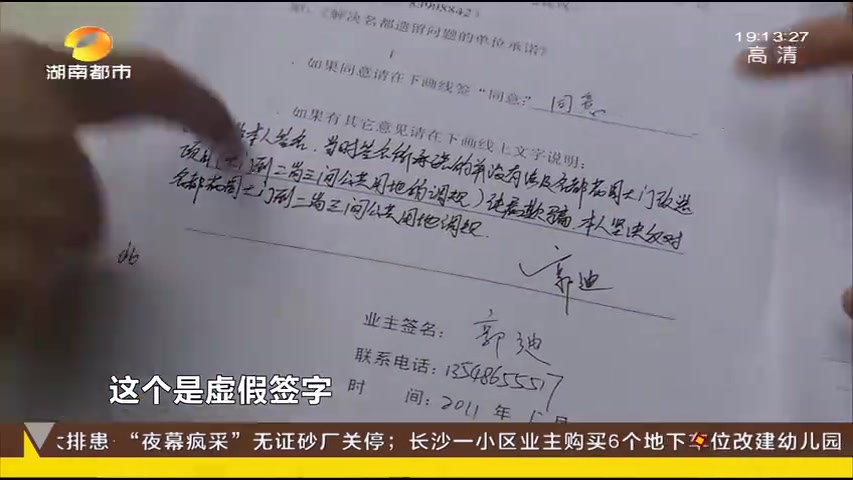 湖南都市
19:13:27
高清
《解决名都遗留问题的单位承诺》
如果同意请在下画线签“同意: 同意
如果有其它意见请在下画线上文字说明:
本人签名,当时生企所承诺的并没有涉及名都花园大门改造
项目(大门到二岗三间公共用地的调规)纯属欺骗,本人坚决反对
名都花园大门到二岗三间公共用地调规.
郭迪
业主签名: 郭迪
联系电话: 13548655517
时 间: 2011 年
这个是虚假签字
大排患 “夜幕疯采”无证砂厂关停; 长沙一小区业主购买6个地下车位改建幼儿园